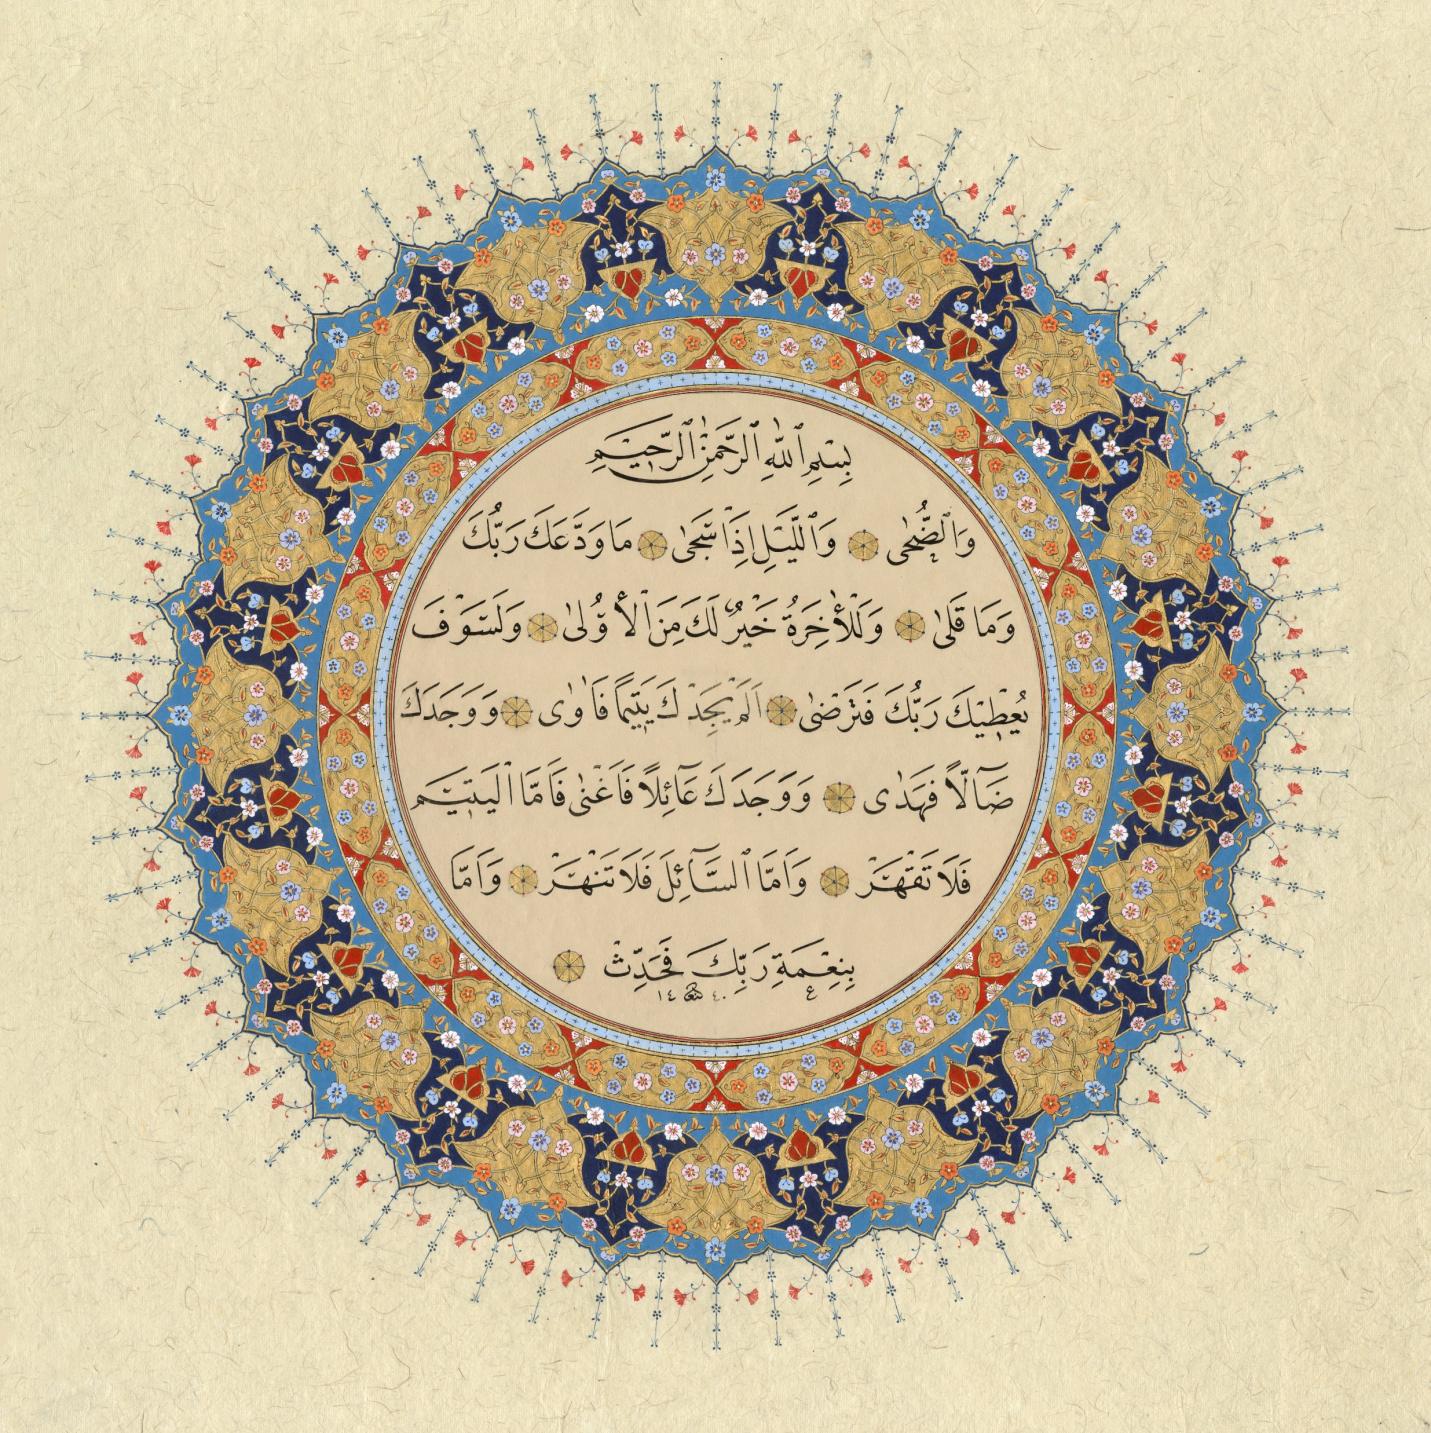 بِسْمِ ٱللّٰهِ ٱلرَّحْمٰنِ ٱلرَّحِيمِ
وَٱلضُّحٰى ۝ وَٱلَّيْلِ اِذَا سَجٰى ۝ مَا وَدَّعَكَ رَبُّكَ
وَمَا قَلٰى ۝ وَلَلْأٰخِرَةُ خَيْرٌ لَكَ مِنَ الْاُوُلٰى ۝ وَلَسَوْفَ
يُعْطِيكَ رَبُّكَ فَتَرْضٰى ۝ اَلَمْ يَجِدْكَ يَتِيمًا فَاٰوٰى ۝ وَوَجَدَكَ
ضَآلًّا فَهَدٰى ۝ وَوَجَدَكَ عَآئِلًا فَاَغْنٰى فَاَمَّا الْيَتِيمَ
فَلَا تَقْهَرْ ۝ وَاَمَّا ٱلسَّآئِلَ فَلَا تَنْهَرْ ۝ وَاَمَّا
بِنِعْمَةِ رَبِّكَ فَحَدِّثْ ۝